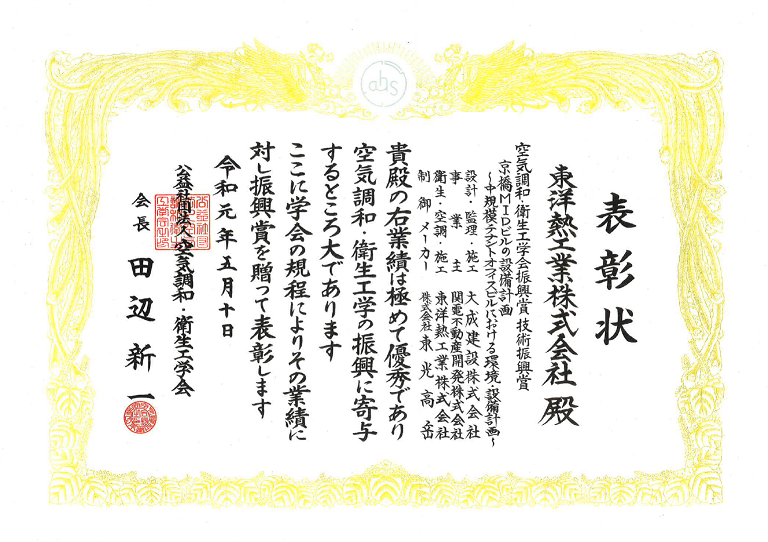 ahs
表彰状
東洋熱工業株式会社 殿
空気調和・衛生工学会振興賞 技術振興賞
京橋MIDビルの設備計画
～中規模テナントオフィスビルにおける環境・設備計画～
設計・監理・施工 大成建設株式会社
事業主 関電不動産開発株式会社
衛生・空調・施工 東洋熱工業株式会社
制御メーカー 株式会社東光高岳
貴殿の右業績は極めて優秀であり
空気調和・衛生工学の振興に寄与
するところ大であります
ここに学会の規程によりその業績に
対し振興賞を贈って表彰します
令和元年五月十日
公益社団法人空気調和・衛生工学会
会長 田辺新一